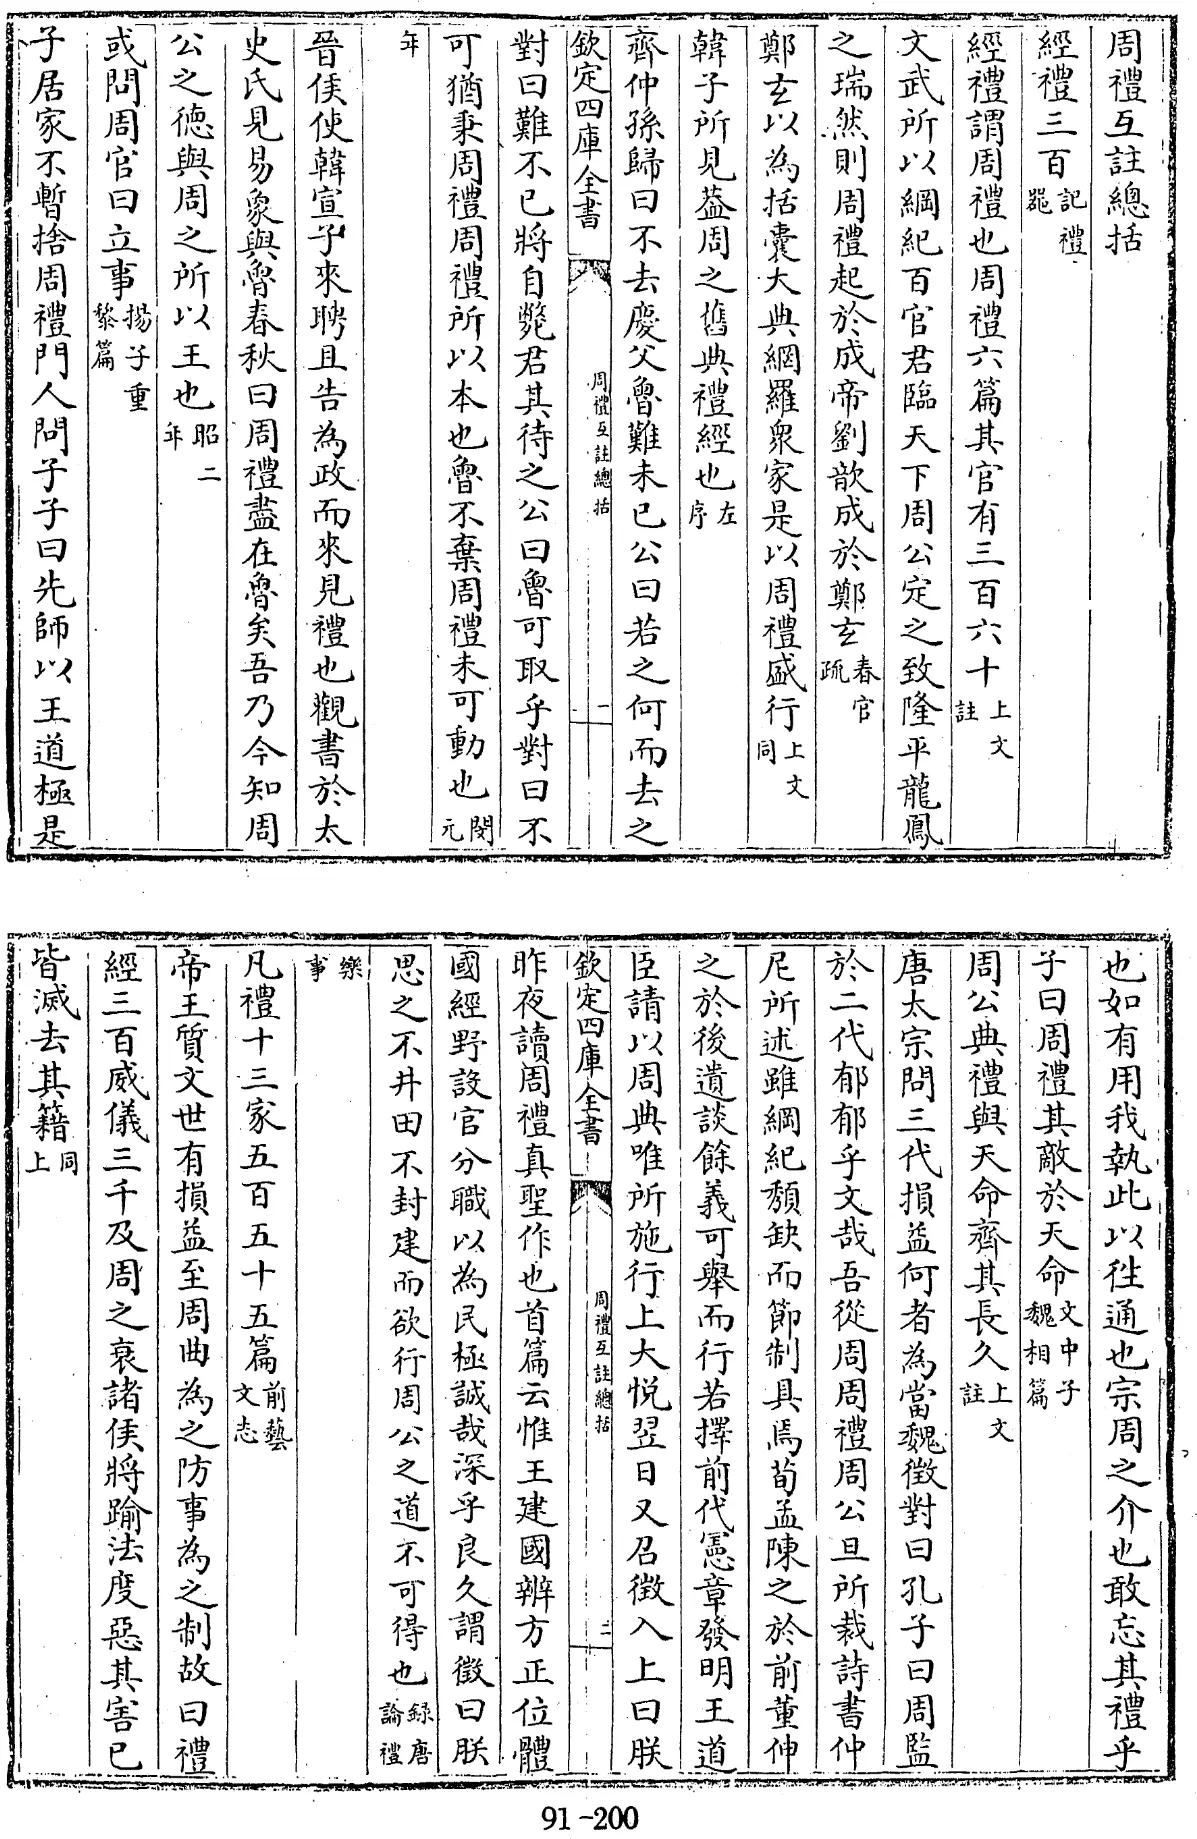 周禮互註總括
經禮三百記禮噐
經禮謂周禮也周禮六篇其官有三百六十上文註
文武所以綱紀百官君臨天下周公定之致隆平龍鳳
之瑞然則周禮起於成帝劉歆成於鄭玄春官疏
鄭玄以為括囊大典網羅衆家是以周禮盛行上文同
韓子所見葢周之舊典禮經也左序
齊仲孫歸曰不去慶父魯難未已公曰若之何而去之
欽定四庫全書
周禮互註總括
一
對曰難不已將自斃君其待之公曰魯可取乎對曰不
可猶秉周禮周禮所以本也魯不棄周禮未可動也閔元
年
晉侯使韓宣子來聘且告為政而來見禮也觀書於太
史氏見易象與魯春秋曰周禮盡在魯矣吾乃今知周
公之德與周之所以王也昭二年
或問周官曰立事揚子重黎篇
子居家不暫捨周禮門人問子子曰先師以王道極是
也如有用我執此以徃通也宗周之介也敢忘其禮乎
子曰周禮其敵於天命文中子魏相篇
周公典禮與天命齊其長久上文註
唐太宗問三代損益何者為當魏徵對曰孔子曰周監
於二代郁郁乎文哉吾從周周禮周公旦所裁詩書仲
尼所述雖綱紀頽缺而節制具焉荀孟陳之於前董伸
之於後遺談餘義可舉而行若擇前代憲章發明王道
臣請以周典唯所施行上大悅翌日又召徵入上曰朕
欽定四庫全書
周禮互註總括
二
昨夜讀周禮真聖作也首篇云惟王建國辨方正位體
國經野設官分職以為民極誠哉深乎良久謂徵曰朕
思之不井田不封建而欲行周公之道不可得也録唐論禮
樂事
凡禮十三家五百五十五篇前藝文志
帝王質文世有損益至周曲為之防事為之制故曰禮
經三百威儀三千及周之衰諸侯將踰法度惡其害已
皆滅去其籍同上
91-200